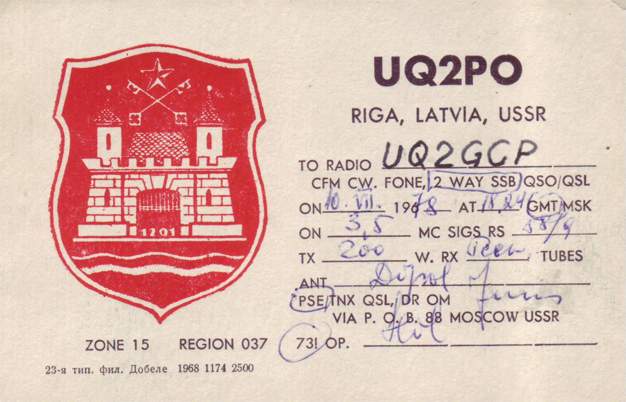 UQ2PO
RIGA, LATVIA, USSR
TO RADIO UQ2GCP
CFM CW. FONE, 2 WAY SSB QSO/QSL
ON 10. VII. 1968 AT GMT/MSK
ON 3,5 MC SIGS RS 58/9
TX 200 W. RX TUBES
ANT Dipol
PSE/TNX QSL, DR OM
VIA P. O. B. 88 MOSCOW USSR
73! OP.
1201
ZONE 15 REGION 037
23-я тип. фил. Добеле 1968 1174 2500